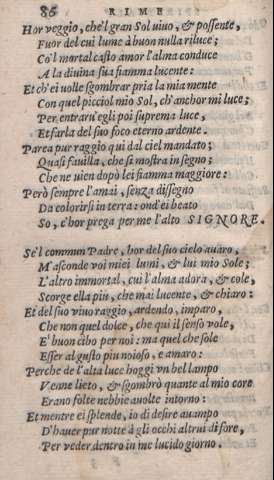 86 RIME
Hor veggio, che'l gran Sol viuo, & possente,
Fuor del cui lume à buon nulla riluce;
Co'l mortal casto amor l'alma conduce
A la diuina sua fiamma lucente:
Et ch'ei volle sgombrar pria la mia mente
Con quel picciol mio Sol, ch'anchor mi luce;
Per entraru'egli poi suprema luce,
Et farla del suo foco eterno ardente.
Parea pur raggio qui dal ciel mandato;
Quasi fauilla, che si mostra in segno;
Che ne uien dopo lei fiamma maggiore:
Però sempre l'amai, senza dissegno
Da colorirsi in terra: ond'ei beato
So, c'hor prega per me l'alto SIGNORE.
Se'l commun Padre, hor del suo cielo auaro,
M'asconde voi miei lumi, & lui mio Sole;
L'altro immortal, cui l'alma adora, & cole,
Scorge ella piu, che mai lucente, & chiaro:
Et del suo viuo raggio, ardendo, imparo,
Che non quel dolce, che qui il senso vole,
E' buon cibo per noi: ma quel che sole
Esser al gusto piu noioso, e amaro:
Perche de l'alta luce hoggi vn bel lampo
Venne lieto, & sgombrò quante al mio core
Erano folte nebbie auolte intorno:
Et mentre ei splende, io di desire auampo
D'hauer pur notte à gli occhi altrui di fore,
Per veder dentro in me lucido giorno.